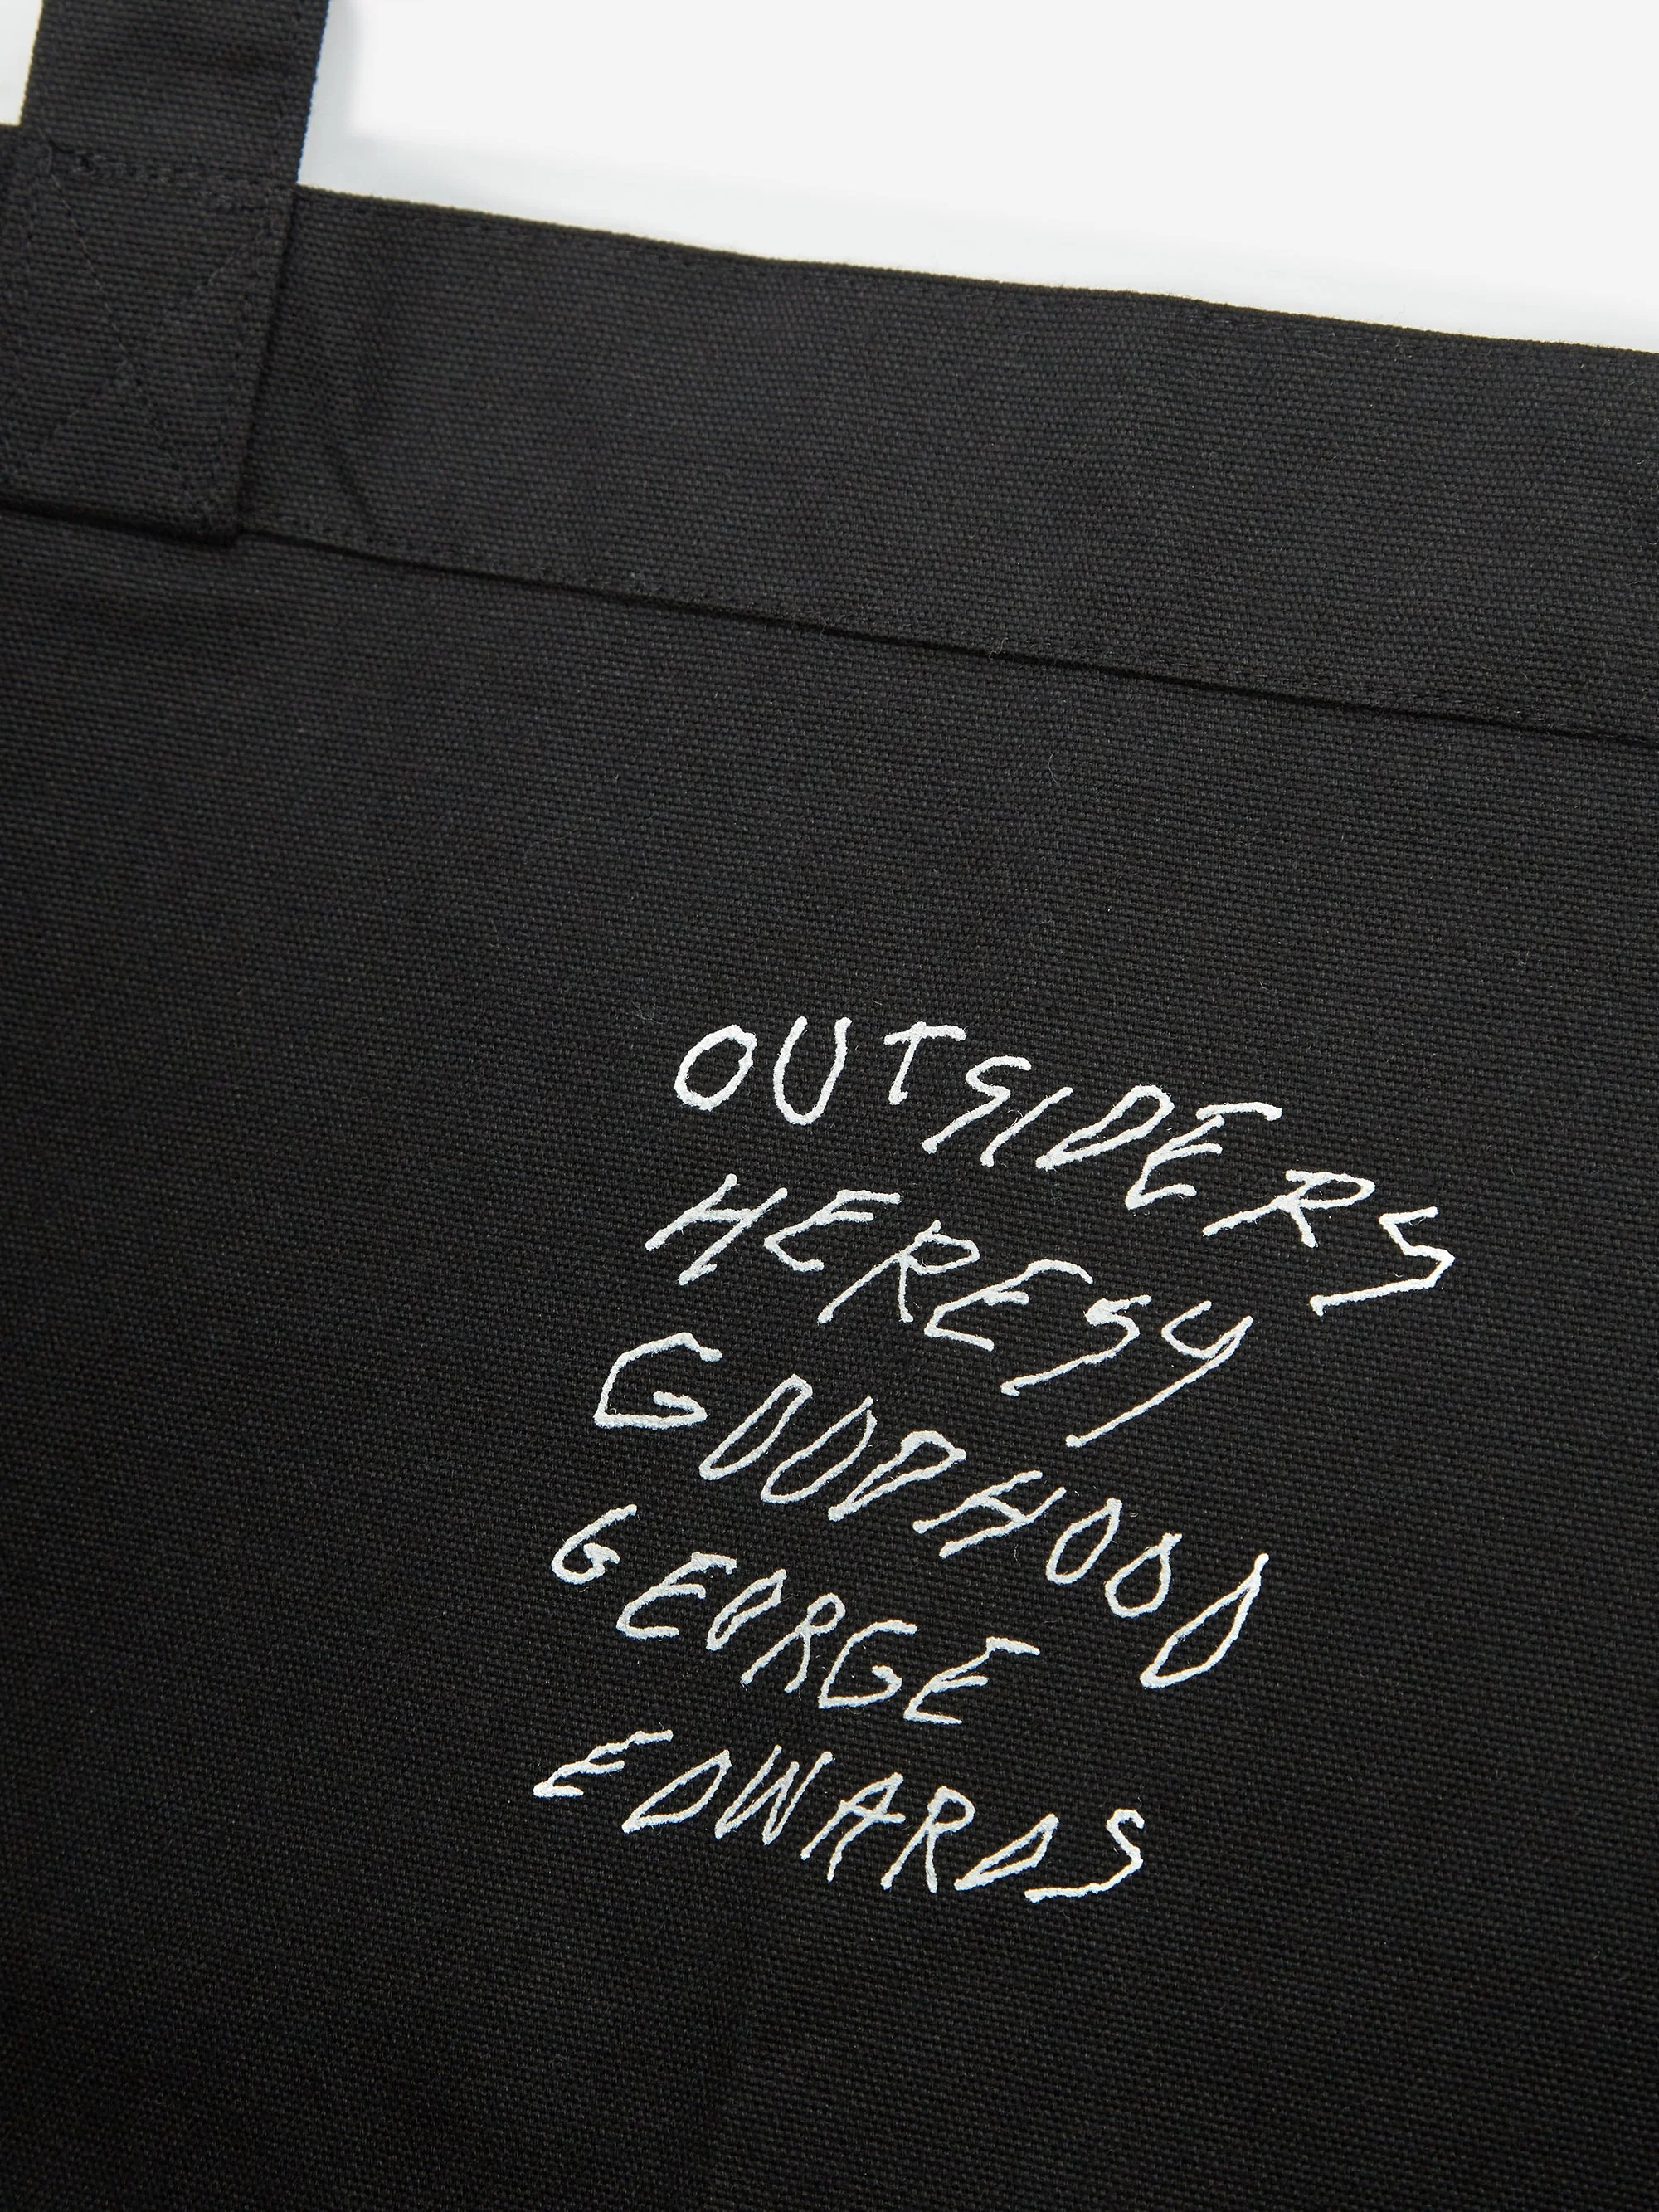 OUTSIDERS
HERESY
GOODHOOD
GEORGE
EDWARDS